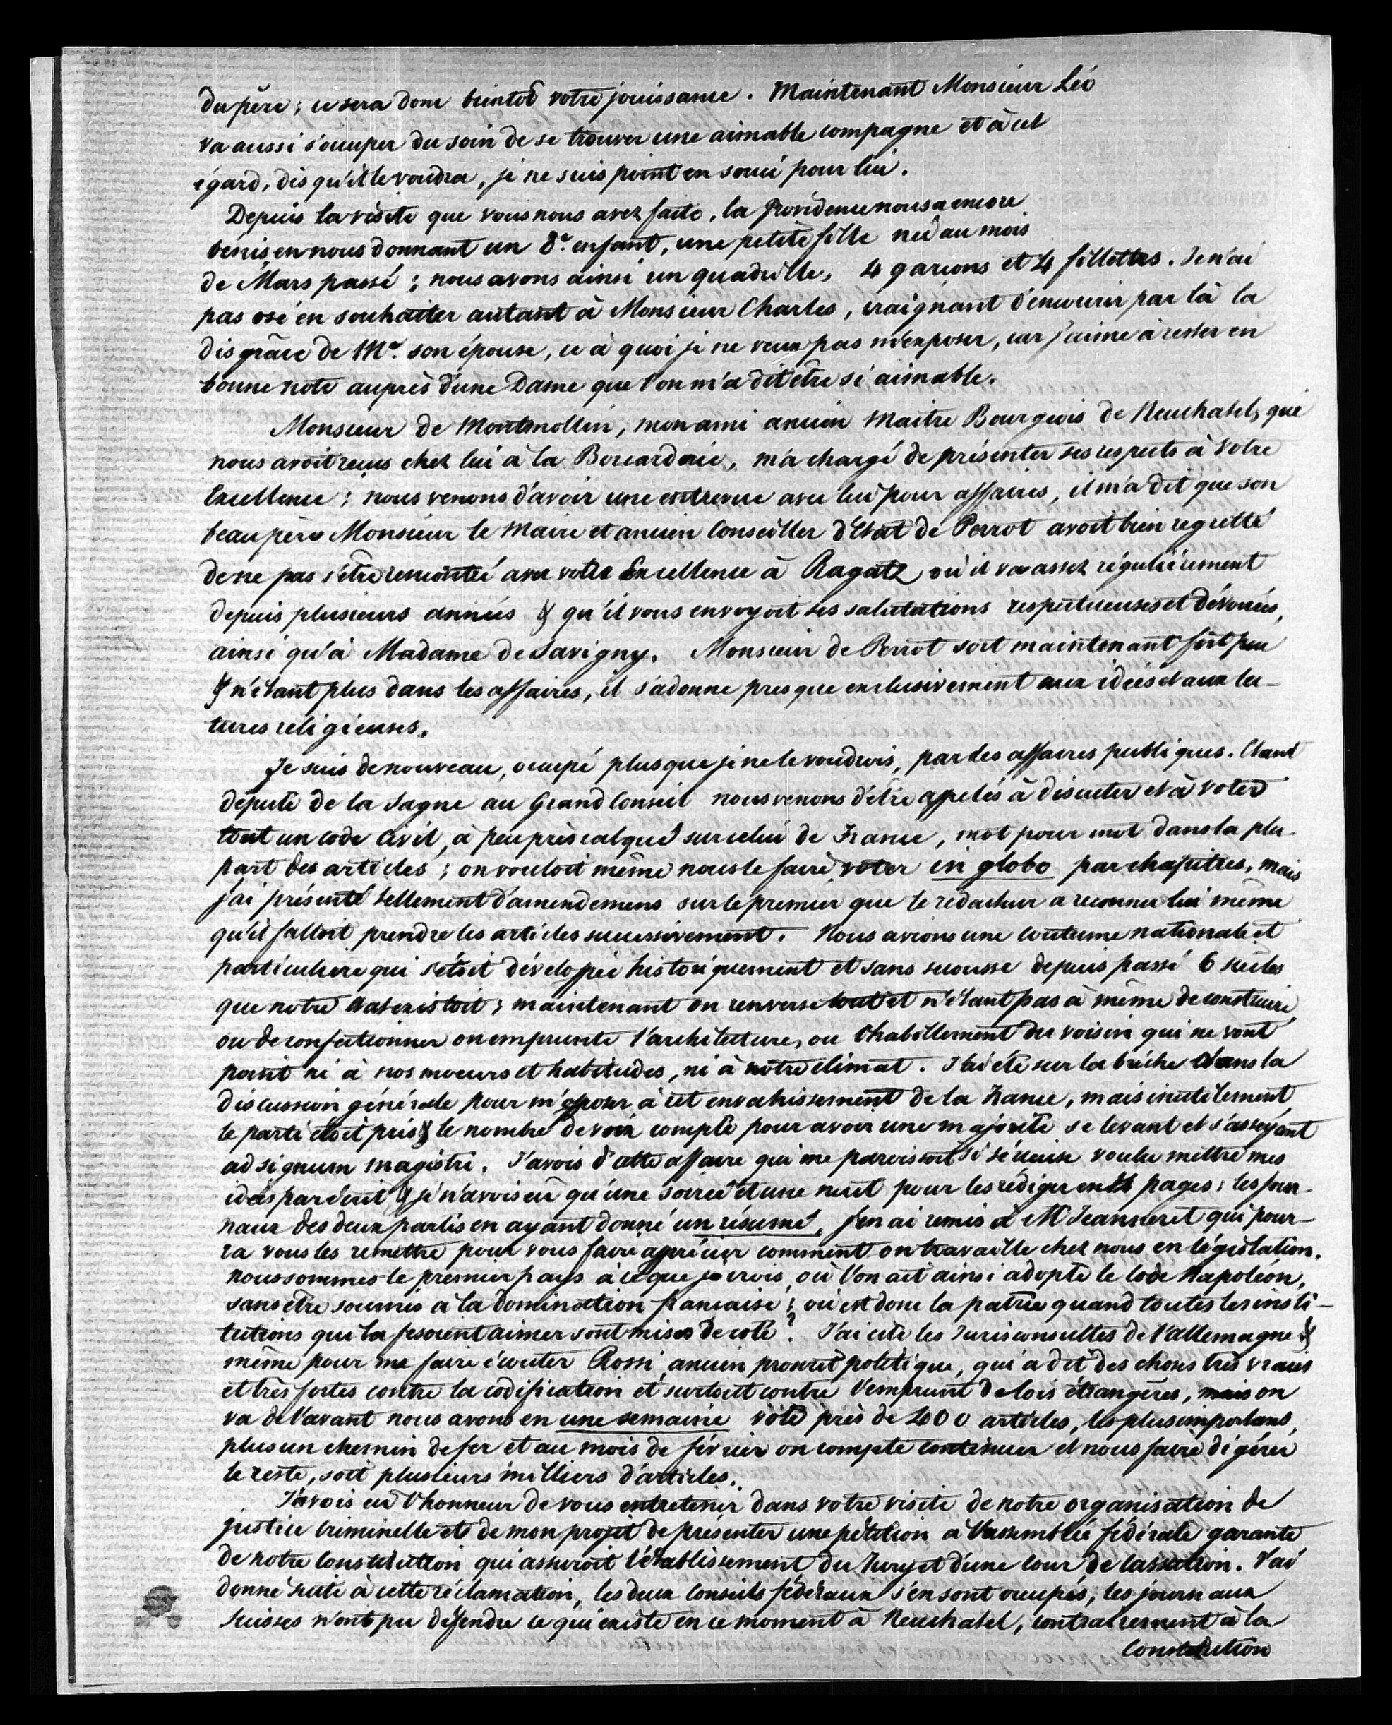 du père ; ce sera donc bientôt votre jouissance. Maintenant Monsieur Léo
va aussi s'occuper du soin de se trouver une aimable compagne et à cet
égard, dis qu'il le voudra, je ne suis point en souci pour lui.
Depuis la visite que vous nous avez faite, la providence nous a encore
benis en nous donnant un 8e enfant, une petite fille née au mois
de Mars passé ; nous avons ainsi un quadrille, 4 garçons et 4 fillettes. Je n'ai
pas osé en souhaiter autant à Monsieur Charles, craignant d'encourir par là la
disgrâce de Me son épouse, ce à quoi je ne veux pas m'exposer, car j'aime à rester en
bonne note auprès d'une Dame que l'on m'a dit être si aimable.
Monsieur de Montmollin, mon ami ancien Maitre Bourgeois de Neuchatel, qui
nous avoit reçus chez lui à la Borcardaie, m'a chargé de présenter ses respects à Votre
Excellence ; nous venons d'avoir une entrevue avec lui pour affaires, il m'a dit que son
beau père Monsieur le Maire et ancien Conseiller d'Etat de Perrot avoit bien regretté
de ne pas s'être rencontré avec votre Excellence à Ragatz où il va assez régulièrement
depuis plusieurs années & qu'il vous envoyoit ses salutations respectueuses et dévouées,
ainsi qu'à Madame de Savigny. Monsieur de Perrot sort maintenant fort peu
& n'étant plus dans les affaires, il s'adonne presque exclusivement aux idées et aux lec-
tures religieuses.
Je suis de nouveau, occupé plus que je ne le voudrois, par des affaires publiques. Etant
député de la Sagne au Grand Conseil nous venons d'être appelés à discuter et à voter
tout un code Civil, à peu près calqué sur celui de France, mot pour mot dans la plu-
part des articles ; on vouloit même nous le faire voter in globo par chapitres, mais
j'ai présenté tellement d'amendemens sur le premier que le rédacteur a reconnu lui même
qu'il falloit prendre les articles successivement. Nous avions une coutume nationale et
particuliere qui s'étoit développée historiquement et sans secousse depuis passé 6 siècles
que notre existoit ; maintenant on renverse tout et n'étant pas à même de construire
ou de confectionner on emprunte l'architecture, ou l'habillement du voisin qui ne vont
point ni à nos moeurs et habitudes, ni à notre climat. J'ai été sur la brèche dans la
discussion générale pour m'opposer à cet envahissement de la France, mais inutilement
le parti étoit pris & le nombre de voix compté pour avoir une majorité se levant et s'asseyant
ad signum magistri. J'avois d'cette affaire qui me paroissoit si sérieuse voulu mettre mes
idées par écrit & je n'avois eû qu'une soirée et une nuit pour les rédiger en pages ; les jour-
naux des deux partis en ayant donné un résumé, j'en ai remis à Mr Jeanneret qui pour-
ra vous les remettre pour vous faire apprécier comment on travaille chez nous en législation.
nous sommes le premier pays à ce que je crois, où l'on ait ainsi adopté le Code Napoléon,
sans être soumis à la domination française ; où est donc la patrie quand toutes les insti-
tutions qui la fesoient aimer sont mises de coté ? J'ai cité les Jurisconsultes de l'allemagne &
même pour me faire écouter Rossi, ancien proscrit politique, qui a dit des choses très vraies
et très fortes contre la codification et surtout contre l'emprunt de lois étrangères, mais on
va de l'avant nous avons en une semaine voté près de 400 articles, les plus importans,
plus un chemin de fer et au mois de février on compte continuer et nous faire digérer
le reste, soit plusieurs milliers d'articles.
J'avois eu l'honneur de vous entretenir dans votre visite de notre organisation de
justice criminelle et de mon projet de présenter une pétition à l'assemblée fédérale garante
de notre Constitution qui assuroit l'établissement du Jury et d'une Cour de Cassation. J'ai
donné suite à cette réclamation, les deux Conseils fédéraux s'en sont occupés, les journaux
Suisses n'ont pu défendre ce qui existe en ce moment à Neuchatel, contrairement à la
Constitution